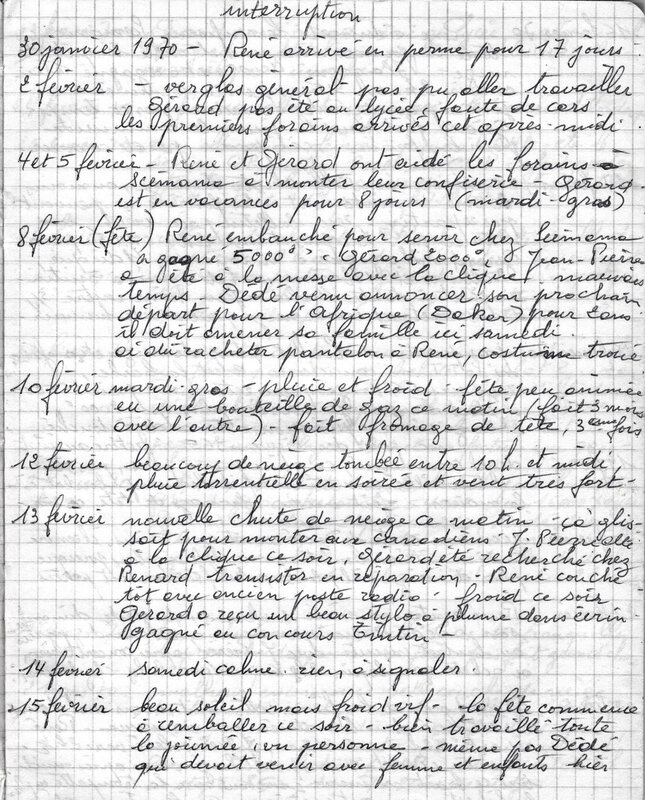 interruption
30 janvier 1970 - René arrivé en perme pour 17 jours.
2 février - verglas général pas pu aller travailler
Gérard pas été au lycée, faute de cars
les premiers forains arrivés cet après-midi.
4 et 5 février - René et Gérard ont aidé les forains
Sciémama à monter leur confiserie - Gérard
est en vacances pour 8 jours (mardi-gras)
8 février (fête) René embauché pour servir chez
a gagné 5000° - Gérard 2000°, Jean-Pierre
a été à la messe avec la clique, mauvais
temps - Dédé venu annoncer son prochain
départ pour l'Afrique (Dakar) pour 2 ans
il doit amener sa famille ici samedi.
ai dû racheter pantalon à René, costume troué
10 février mardi-gras - pluie et froid - fête peu animée
eu une bouteille de gaz ce matin (fait 3 mois
avec l'autre) - fait fromage de tête, 3ème fois
12 février beaucoup de neige tombée entre 10h. et midi,
pluie torrentielle en soirée et vent très fort -
13 février nouvelle chute de neige ce matin - çà glis-
sait pour monter aux Canadiens - J. Pierre allé
à la clique ce soir, Gérard été recherché chez
Renard transistor en réparation - René couché
tôt avec ancien poste radio - froid ce soir
Gérard a reçu un beau stylo à plume dans écrin
gagné au concours Tintin -
14 février samedi calme. rien à signaler.
15 février beau soleil mais froid vif - la fête commence
à remballer ce soir - bien travaillé toute
la journée, vu personne - même pas Dédé
qui devait venir avec femme et enfants hier